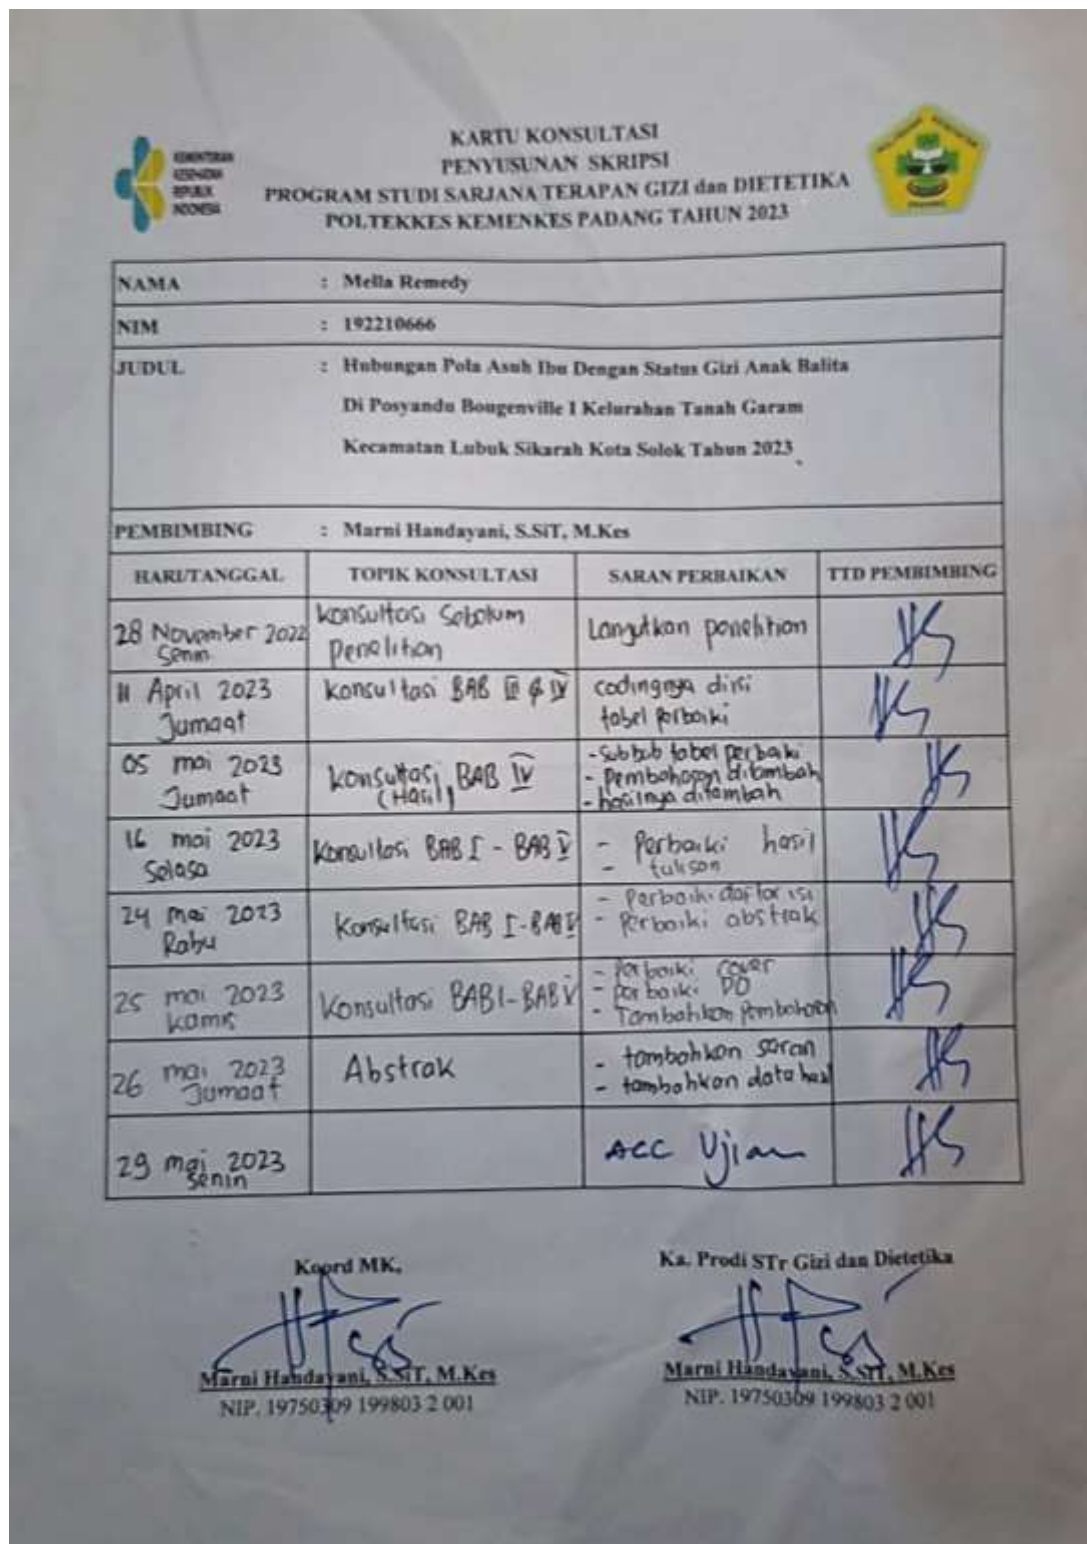 KEMENTERIAN
KESEHATAN
REPUBLIK
INDONESIA
KARTU KONSULTASI
PENYUSUNAN SKRIPSI
PROGRAM STUDI SARJANA TERAPAN GIZI dan DIETETIKA
POLTEKKES KEMENKES PADANG TAHUN 2023
NAMA : Mella Remedy
NIM : 192210666
JUDUL : Hubungan Pola Asuh Ibu Dengan Status Gizi Anak Balita
Di Posyandu Bougenville I Kelurahan Tanah Garam
Kecamatan Lubuk Sikarah Kota Solok Tahun 2023
PEMBIMBING : Marni Handayani, S.SiT, M.Kes
HARI/TANGGAL TOPIK KONSULTASI SARAN PERBAIKAN TTD PEMBIMBING
28 November 2022
Senin
Konsultasi Sebelum
Penelitian
Lanjutkan penelitian
11 April 2023
Jumaat
Konsultasi BAB III & IV
codingnya diisi
tabel perbaiki
05 mai 2023
Jumaat
Konsultasi BAB IV
(Hasil)
- Subbab tabel perbaiki
- Pembahasan ditambah
- hasilnya ditambah
16 mai 2023
Selasa
Konsultasi BAB I - BAB V
- Perbaiki hasil
- tulisan
24 mai 2023
Rabu
Konsultasi BAB I - BAB V
- Perbaiki daftar isi
- Perbaiki abstrak
25 mai 2023
Kamis
Konsultasi BAB I - BAB V
- Perbaiki cover
- perbaiki DO
- Tambahkan pembahasan
26 mai 2023
Jumaat
Abstrak
- tambahkan saran
- tambahkan data hasil
29 mai 2023
Senin
ACC Ujian
Koord MK,
Marni Handayani, S.SiT, M.Kes
NIP. 19750309 199803 2 001
Ka. Prodi STr Gizi dan Dietetika
Marni Handayani, S.SiT, M.Kes
NIP. 19750309 199803 2 001